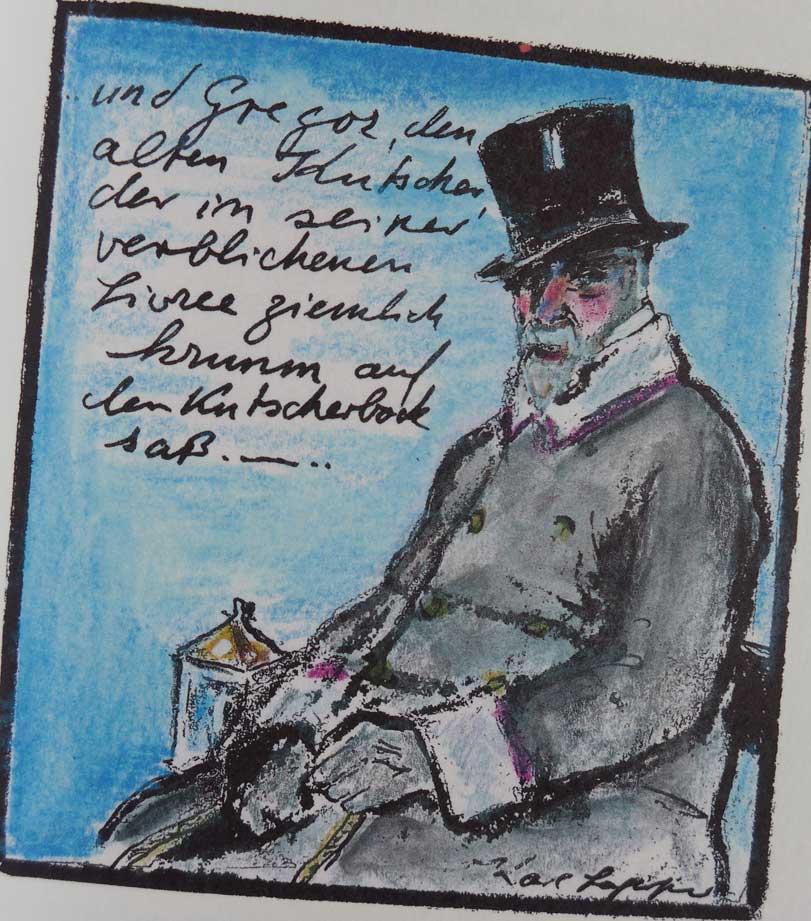 ..und Gregor, den
alten Kutscher,
der in seiner
verblichenen
Livree ziemlich
krumm auf
dem Kutscherbock
saß.—..